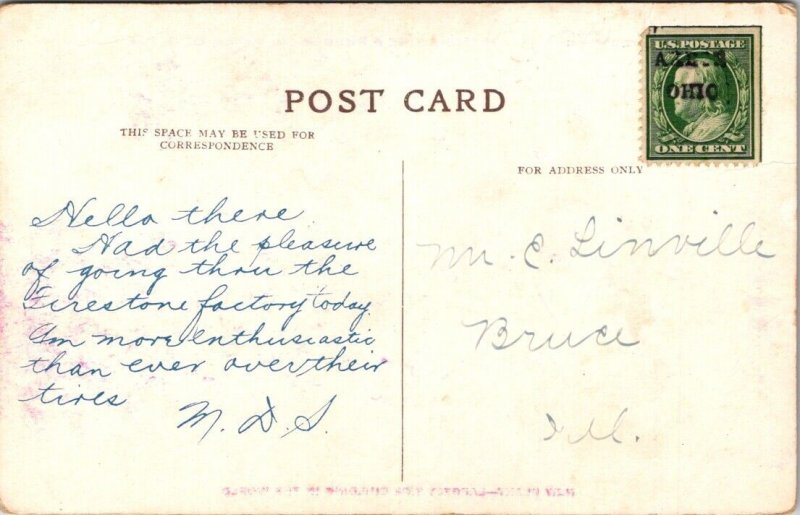 POST CARD
THIS SPACE MAY BE USED FOR
CORRESPONDENCE
FOR ADDRESS ONLY
U.S. POSTAGE
OHIO
ONE CENT
Hello there
Had the pleasure
of going thru the
Firestone factory today.
Am more enthusiastic
than ever over their
tires
M. D. S.
Mr. C. Linville
Bruce
Ill.